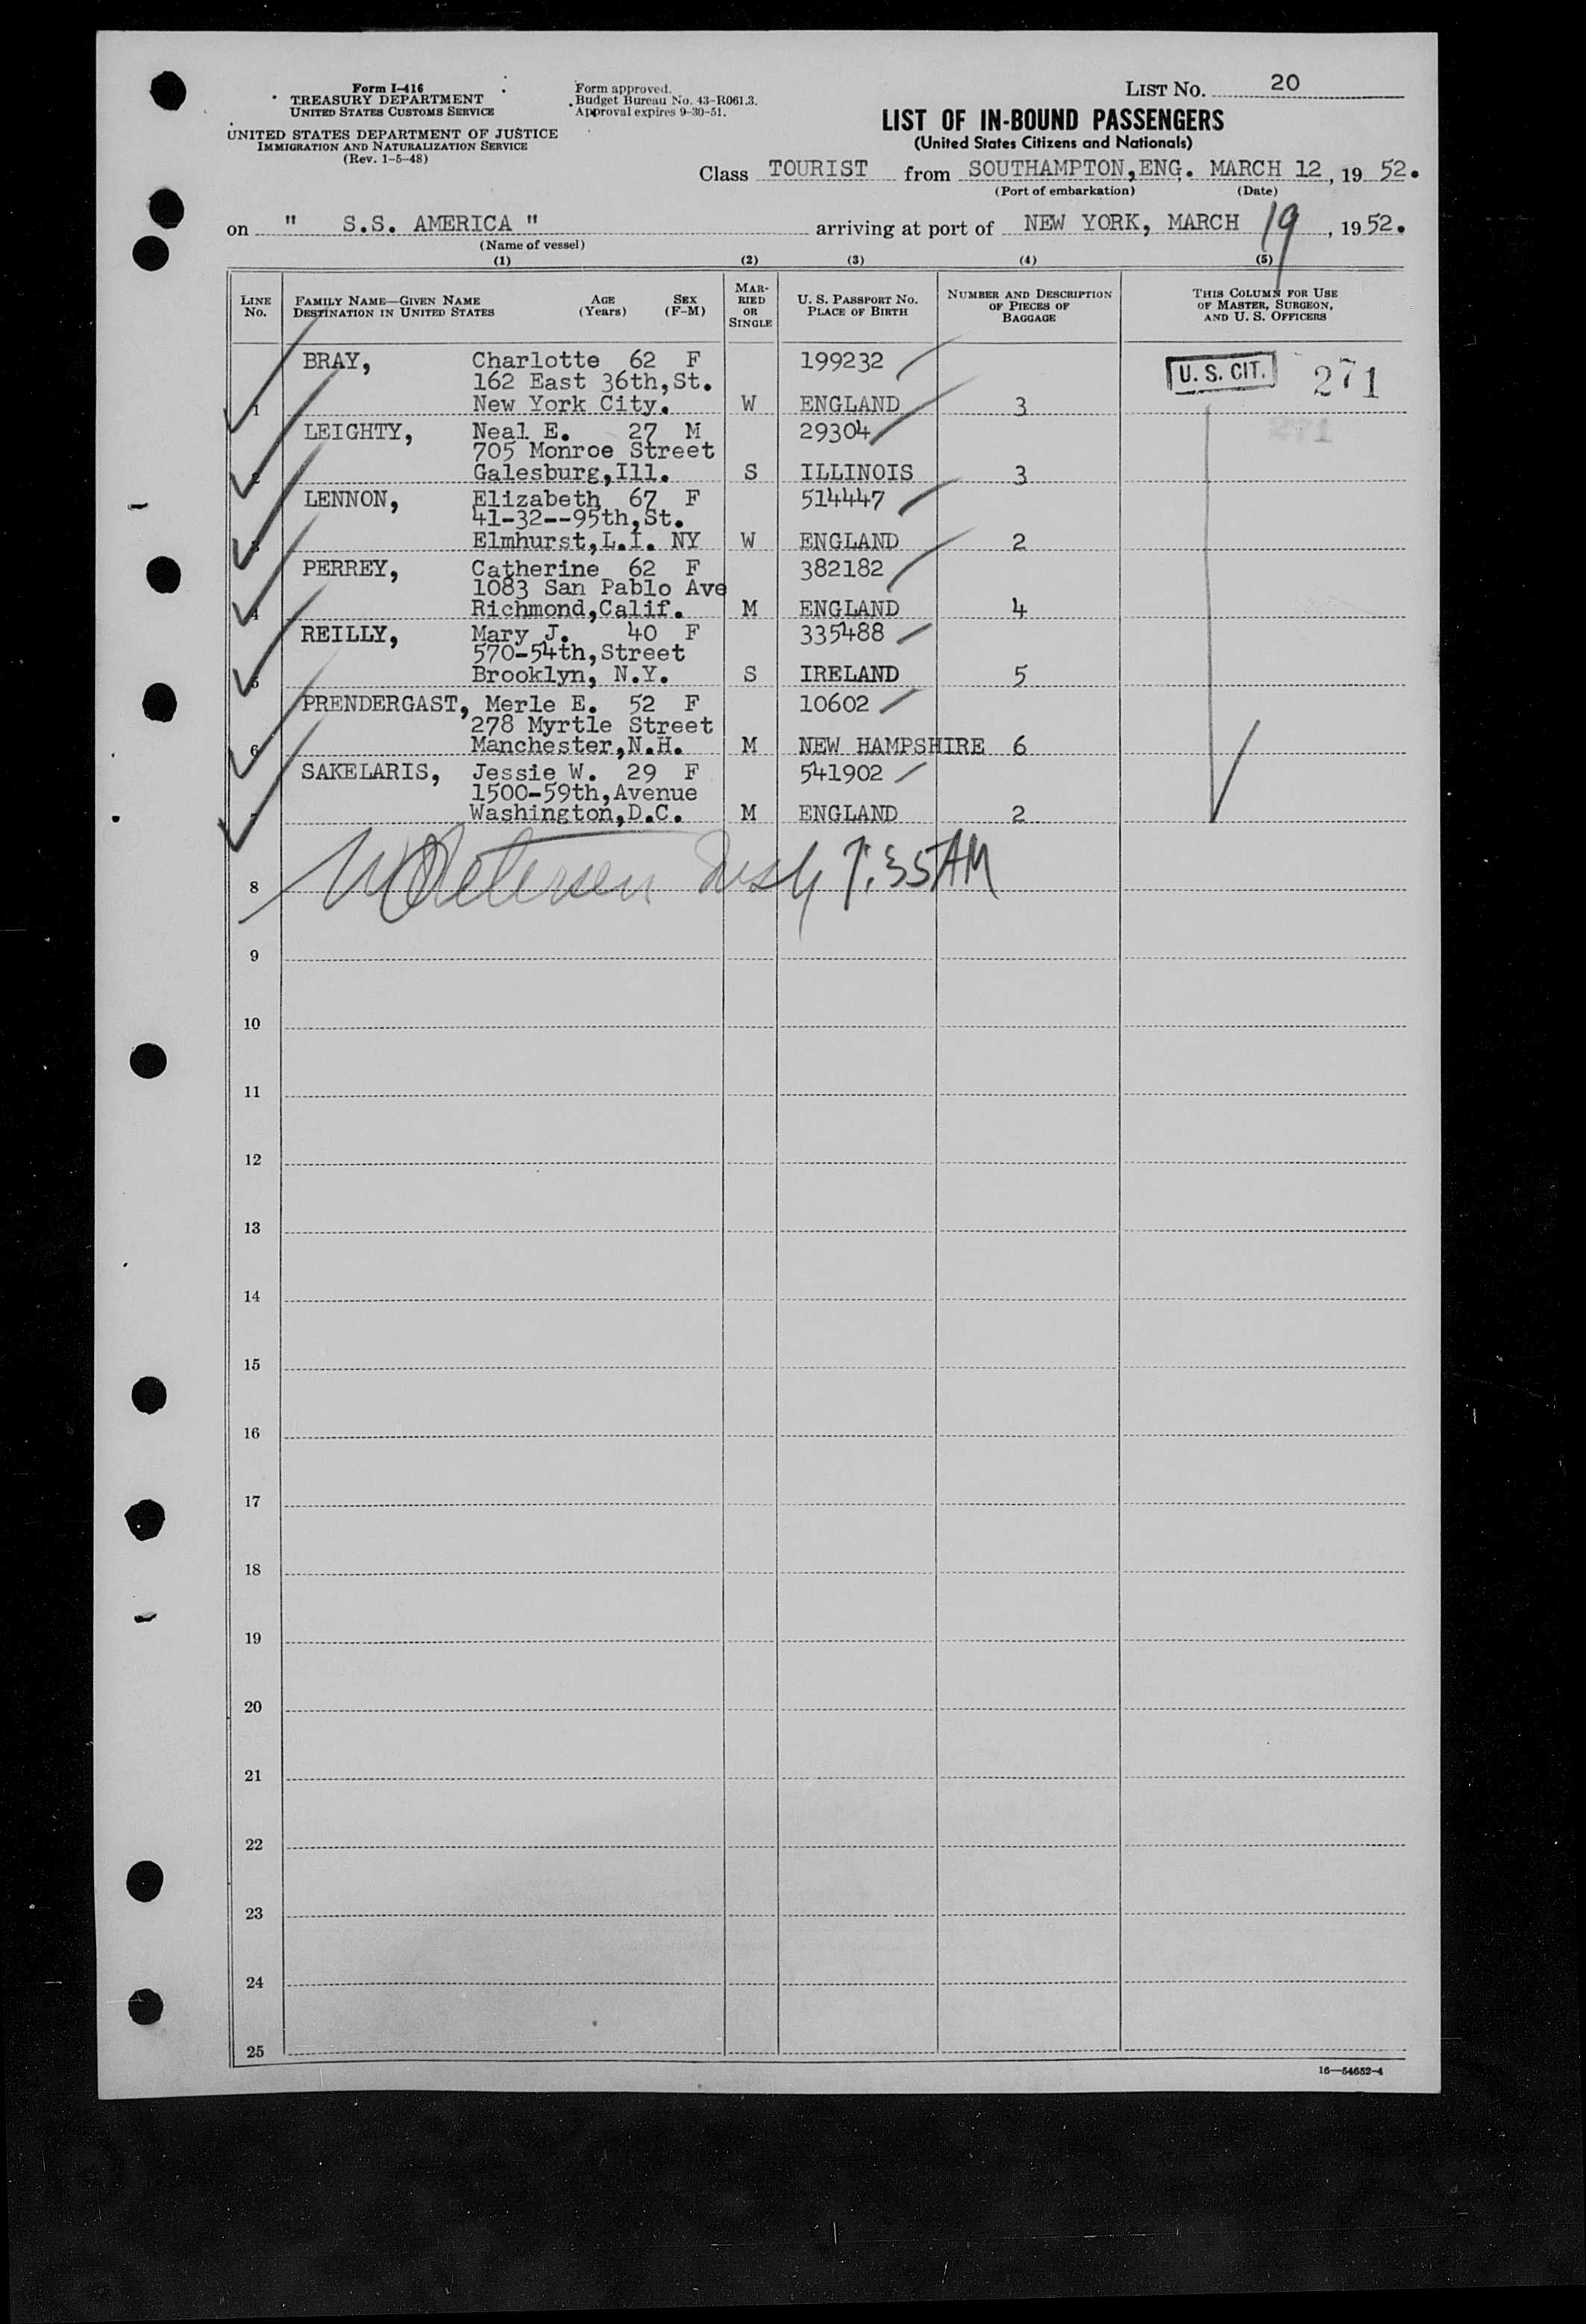 Form I-416
TREASURY DEPARTMENT
UNITED STATES CUSTOMS SERVICE
UNITED STATES DEPARTMENT OF JUSTICE
IMMIGRATION AND NATURALIZATION SERVICE
(Rev. 1-5-48)
Form approved.
Budget Bureau No. 43-R061.3.
Approval expires 9-30-51.
LIST No. 20
LIST OF IN-BOUND PASSENGERS
(United States Citizens and Nationals)
Class TOURIST from SOUTHAMPTON,ENG. MARCH 12, 19 52.
(Port of embarkation) (Date)
on " S.S. AMERICA " arriving at port of NEW YORK, MARCH 19, 1952.
(Name of vessel)
(1) (2) (3) (4) (5)
LINE No. FAMILY NAME—GIVEN NAME DESTINATION IN UNITED STATES AGE (Years) SEX (F-M) MARRIED OR SINGLE U. S. PASSPORT No. PLACE OF BIRTH NUMBER AND DESCRIPTION OF PIECES OF BAGGAGE THIS COLUMN FOR USE OF MASTER, SURGEON, AND U. S. OFFICERS
BRAY, Charlotte 62 F 199232 U. S. CIT. 271
162 East 36th,St.
1 New York City. W ENGLAND 3
LEIGHTY, Neal E. 27 M 29304 271
705 Monroe Street
2 Galesburg,Ill. S ILLINOIS 3
LENNON, Elizabeth 67 F 514447
41-32--95th,St.
3 Elmhurst,L.I. NY W ENGLAND 2
PERREY, Catherine 62 F 382182
1083 San Pablo Ave
4 Richmond,Calif. M ENGLAND 4
REILLY, Mary J. 40 F 335488
570-54th,Street
5 Brooklyn, N.Y. S IRELAND 5
PRENDERGAST, Merle E. 52 F 10602
278 Myrtle Street
6 Manchester,N.H. M NEW HAMPSHIRE 6
SAKELARIS, Jessie W. 29 F 541902
1500-59th,Avenue
7 Washington,D.C. M ENGLAND 2
8 Petersen 7:35 AM
9
10
11
12
13
14
15
16
17
18
19
20
21
22
23
24
25
16—54652-4